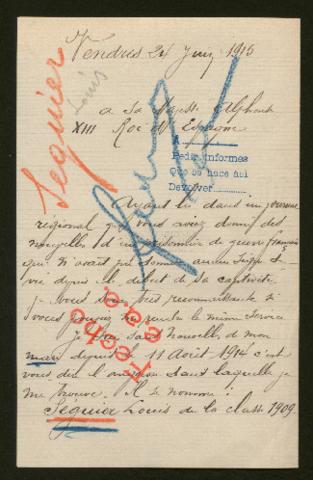 Vendres 24 Juin 1915
Seguier
Louis
a Sa Majesté Alphonse
XIII Roi d'Espagne
A
Pedir informes
Que se hace aci
Devolver
Ayant lu dans un journal
régional que vous aviez donné des
nouvelles d'un prisonnier de guerre français
qui n'avait pas donné aucun signe de
vie depuis le début de sa captivité
je vous serai très reconnaissante si
vous pouviez me rendre le même service
Je suis sans nouvelles de mon
mari depuis le 11 Août 1914 c'est
vous dire l'angoisse dans laquelle je
me trouve. Il se nomme:
Séguier Louis de la classe 1909.